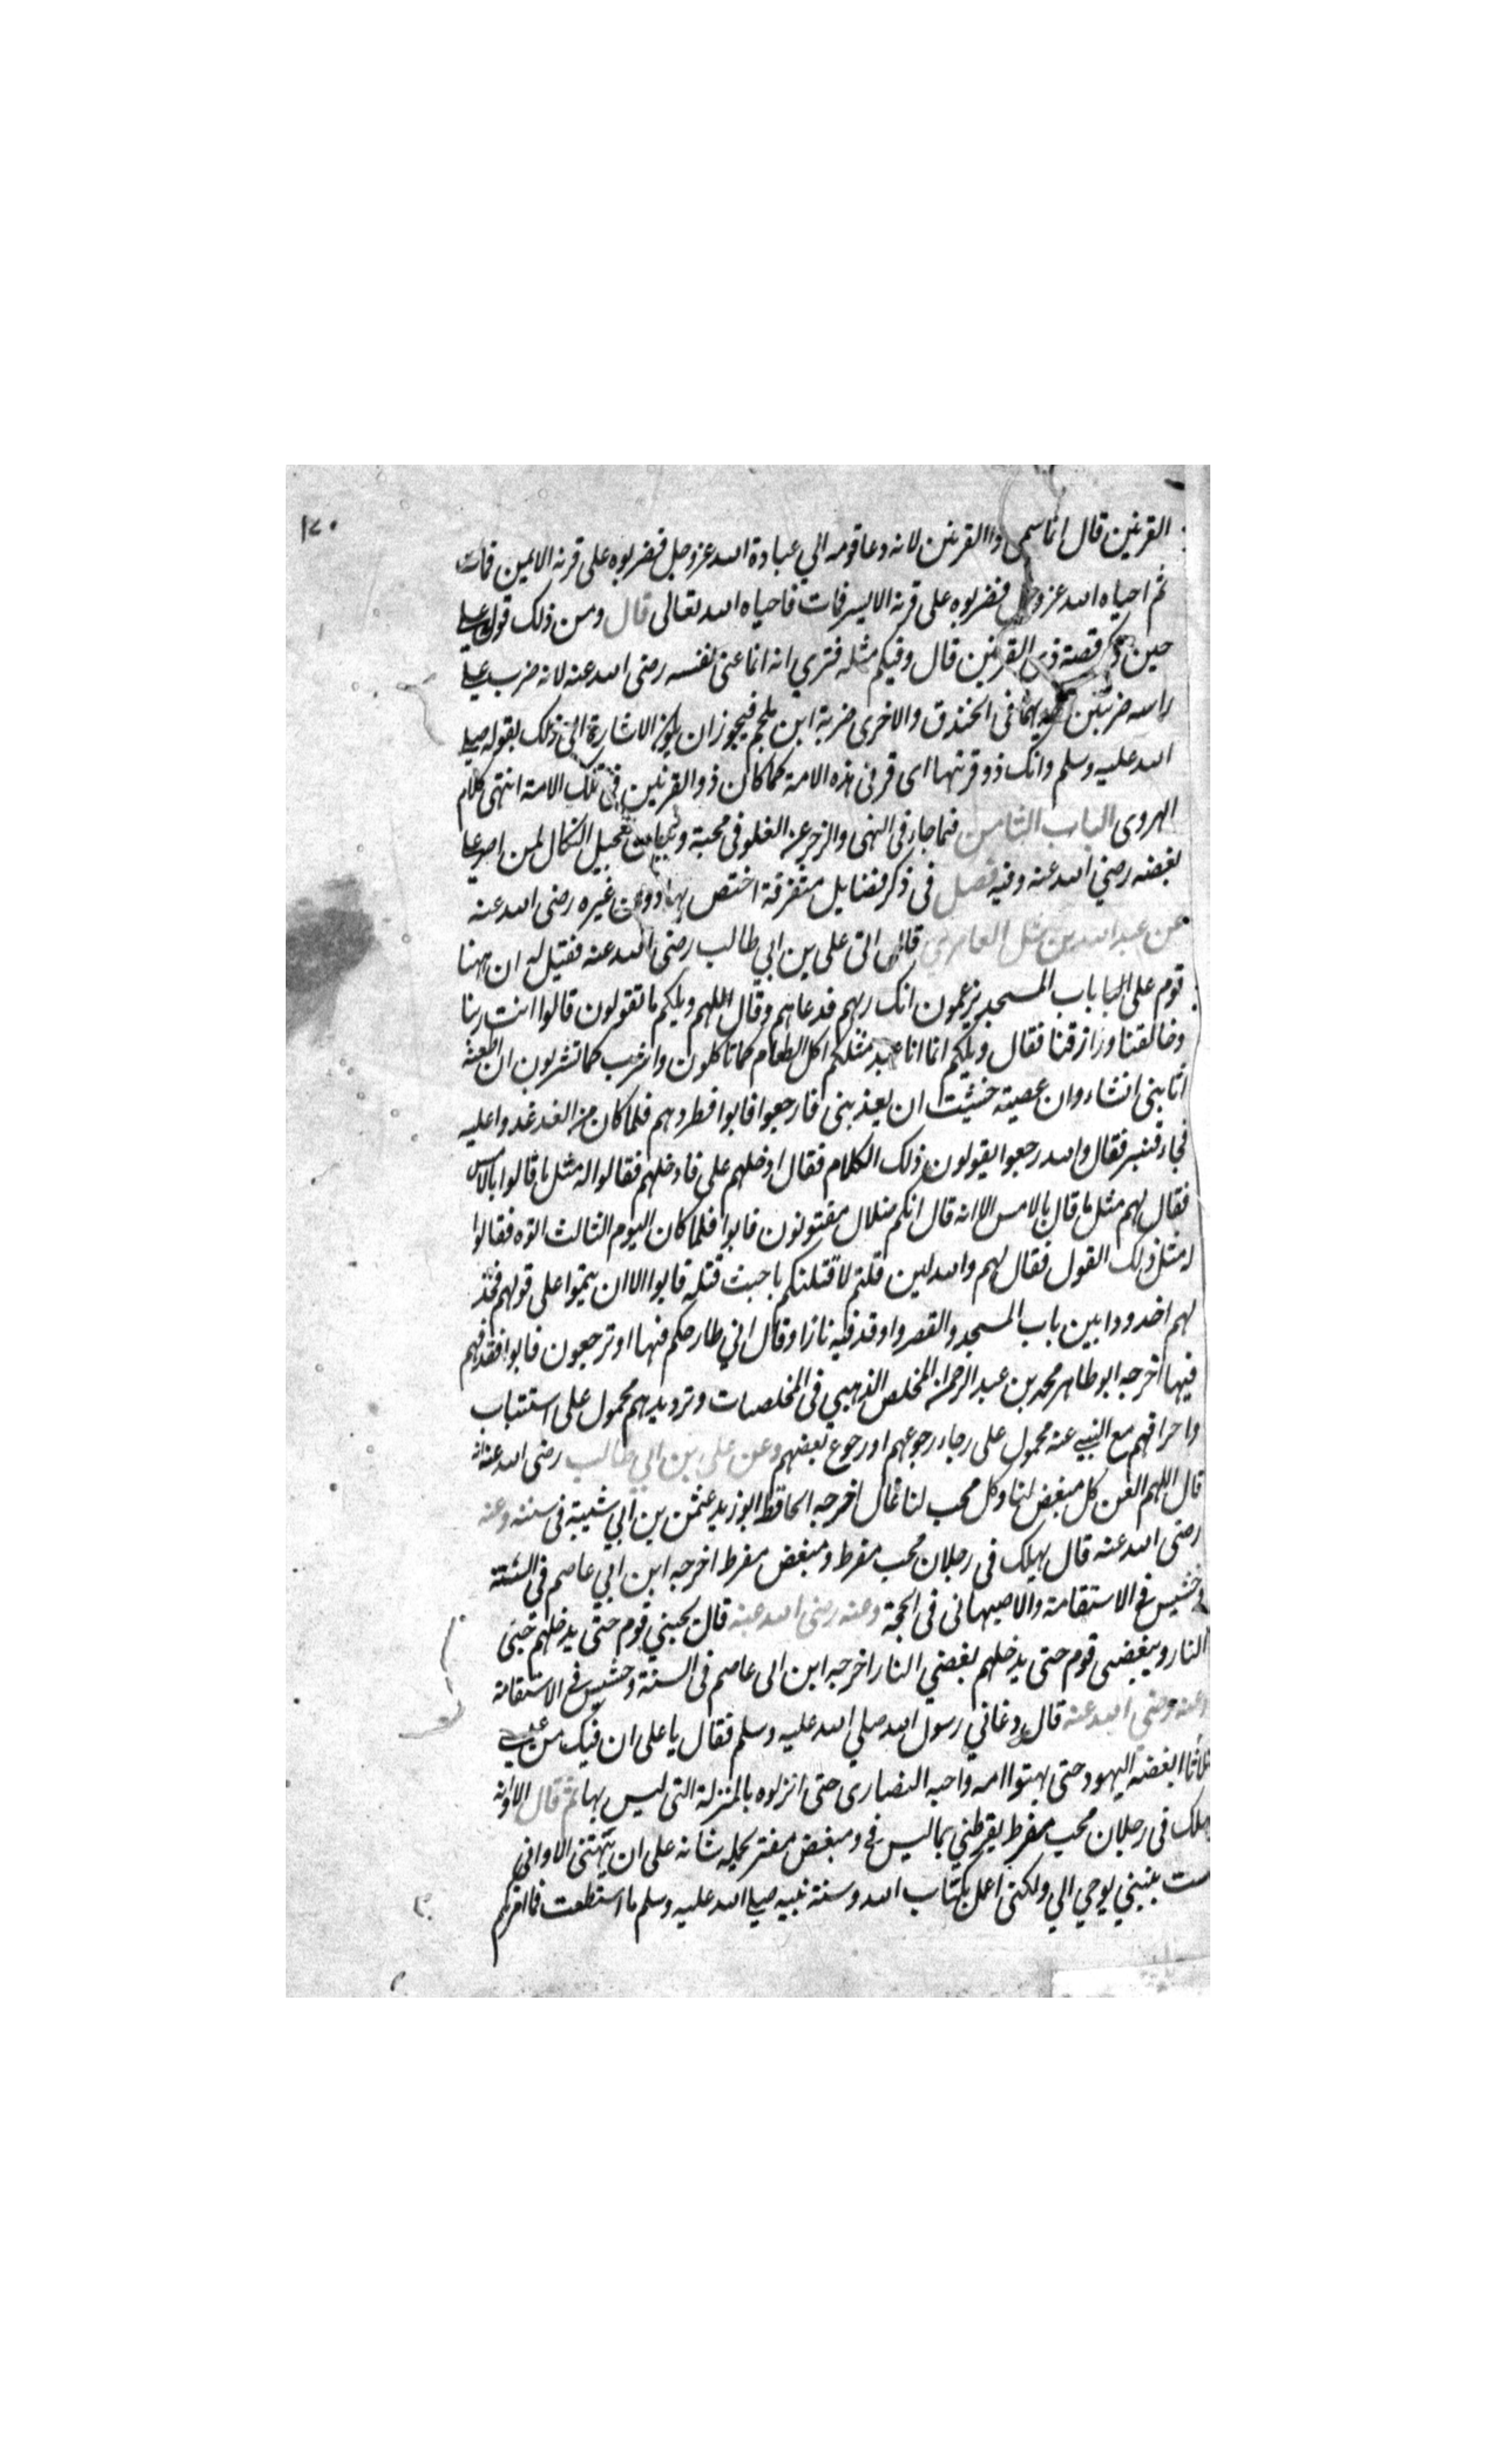 ١٧٠
القرنين قال انما سمى ذا القرنين لانه دعا قومه الي عبادة الله عز وجل فضربوه على قرنه الايمن فمات
ثم احياه الله عز وجل فضربوه على قرنه الايسر فمات فاحياه الله تعالى قال ومن ذلك قول علي
حين ذكر قصة ذي القرنين قال وفيكم مثله فتري انه انما عنى نفسه رضى الله عنه لانه ضرب علي
راسه ضربتين في الخندق والاخرى ضربة ابن ملجم فيجوز ان يكون الاشارة الى ذلك بقوله صلى
الله عليه وسلم وانك ذو قرنيها اى قرنى هذه الامة كما كان ذو القرنين في تلك الامة انتهى كلام
الهروى الباب الثامن فيما جاء في النهى والزجر عن الغلو فى محبة وتعجيل النكال لمن اصر على
بغضه رضي الله عنه وفيه فصل في ذكر فضايل متفرقة اختص بها دون غيره رضى الله عنه
عن عبد الله بن العامري قال اتى على بن ابي طالب رضى الله عنه فقيل له ان ههنا
قوم على باب المسجد يزعمون انك ربهم فدعاهم وقال اللهم ويلكم ما تقولون قالوا انت ربنا
وخالقنا ورازقنا فقال ويلكم انما انا عبد مثلكم اكل الطعام كما تاكلون واشرب كما تشربون ان اطعته
اثابني انشاء وان عصيته خشيت ان يعذبنى فارجعوا فابوا فطردهم فلما كان من الغد غدوا عليه
فجاء قنبر فقال والله رجعوا يقولون ذلك الكلام فقال ادخلهم على فادخلهم فقالوا له مثل ما قالوا بالامس
فقال لهم مثل ما قال بالامس الا انه قال انكم ضلال مفتونون فابوا فلما كان اليوم الثالث اتوه فقالوا
له مثل ذلك القول فقال لهم والله لين قلتم لاقتلنكم باخبث قتلة فابوا الا ان يتموا على قولهم فخد
لهم اخدودا بين باب المسجد والقصر واوقد فيه نارا وقال اني طارحكم فيها او ترجعون فابوا فقذفهم
فيها اخرجه ابو طاهر محمد بن عبد الرحمن المخلص الذهبي فى المخلصات وترديدهم محمول على استتباب
واحراقهم مع النهي عنه محمول على رجاء رجوعهم او رجوع بعضهم وعن على بن ابي طالب رضى الله عنه انه
قال اللهم العن كل مبغض لنا وكل محب لنا غال اخرجه الحافظ ابو زيد عثمن بن ابي شيبة في سننه وعنه
رضى الله عنه قال يهلك فى رجلان محب مفرط ومبغض مفرط اخرجه ابن ابي عاصم فى السنة
وخشيش في الاستقامة والاصبهانى فى الحجة وعنه رضى الله عنه قال يحبني قوم حتى يدخلهم حبى
النار ويبغضى قوم حتى يدخلهم بغضي النار اخرجه ابن ابى عاصم فى السنة وخشيش في الاستقامة
وعنه رضى الله عنه قال دعاني رسول الله صلي الله عليه وسلم فقال يا على ان فيك من عيسى
مثلا ابغضه اليهود حتى بهتوا امه واحبه النصارى حتى انزلوه بالمنزلة التى ليس بها ثم قال الا وانه
يهلك فى رجلان محب مفرط يقرظني بما ليس في ومبغض مفتر يحمله شانه على ان يبهتنى الا وانى
لست بنبي يوحي الي ولكنى اعمل بكتاب الله وسنة نبيه صلى الله عليه وسلم ما استطعت فما امرتكم